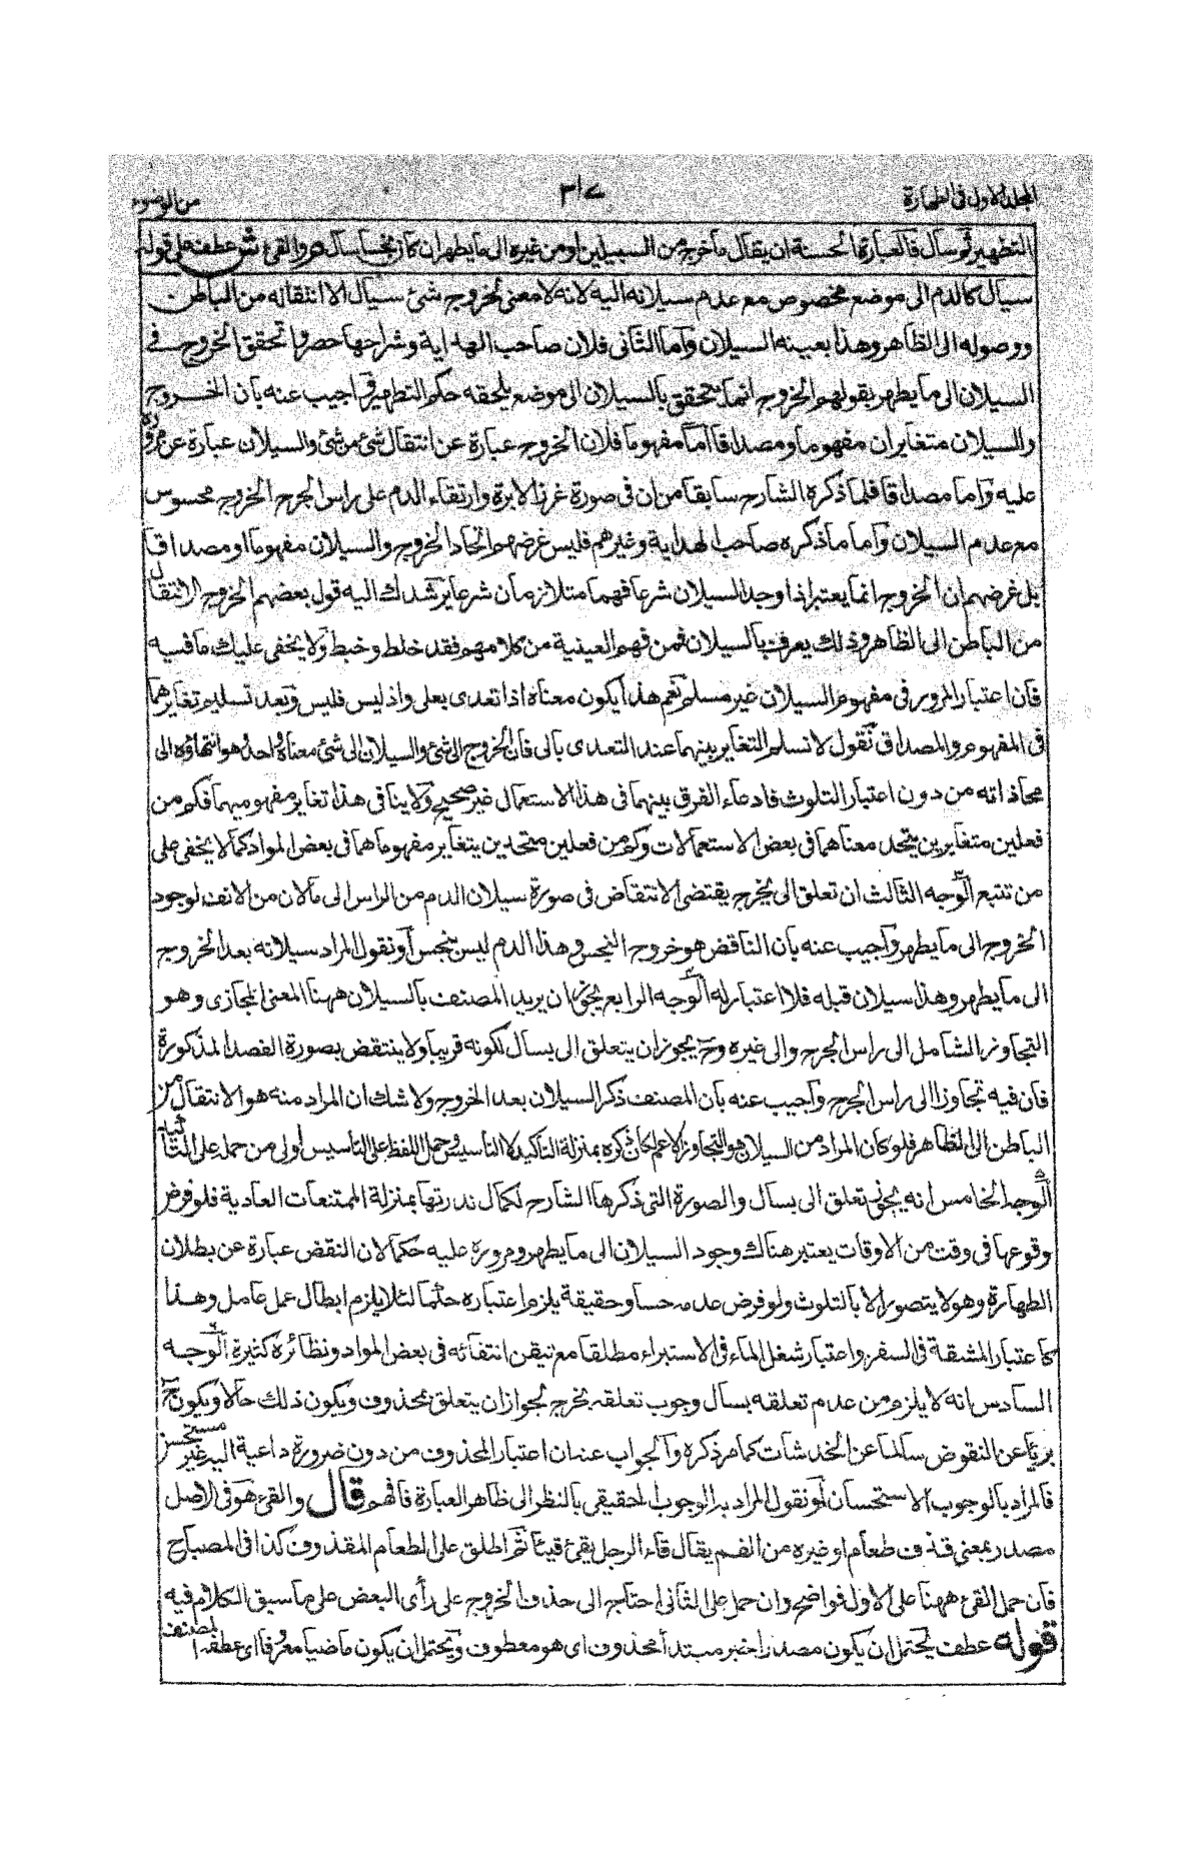 المجلد الاول فى الطهارة
٣١٧
من الوضوء
التطهير ثم سال فالعبارة الحسنة ان يقال ما خرج من السبيلين او من غيره الى ما يطهر ان كان نجسا سال هم والقئ ش عطف على قوله
سيال كالدم الى موضع مخصوص مع عدم سيلانه اليه لانه لا معنى لخروج شئ سيال الا انتقاله من الباطن
ووصوله الى الظاهر وهذا بعينه السيلان واما الثانى فلان صاحب الهداية وشراحها حصروا تحقق الخروج فى
السيلان الى ما يطهر بقولهم الخروج انما يتحقق بالسيلان الى موضع يلحقه حكم التطهير واجيب عنه بان الخروج
والسيلان متغايران مفهوما ومصداقا اما مفهوما فلان الخروج عبارة عن انتقال شئ من شئ والسيلان عبارة عن مروره
عليه واما مصداقا فلما ذكره الشارح سابقا من ان فى صورة غرز الابرة وارتقاء الدم على راس الجرح الخروج محسوس
مع عدم السيلان واما ما ذكره صاحب الهداية وغيرهم فليس غرضهم اتحاد الخروج والسيلان مفهوما او مصداقا
بل غرضهم ان الخروج انما يعتبر اذا وجد السيلان شرعا فهما متلازمان شرعا يرشدك اليه قول بعضهم الخروج الانتقال
من الباطن الى الظاهر وذلك يعرف بالسيلان فمن فهم العينية من كلامهم فقد خلط وخبط ولا يخفى عليك ما فيه
فان اعتبار المرور فى مفهوم السيلان غير مسلم نعم هذا يكون معناه اذا تعدى بعلى واذ ليس فليس وبعد تسليم تغايرهما
فى المفهوم والمصداق نقول لا نسلم التغاير بينهما عند التعدى بالى فان الخروج الى شئ والسيلان الى شئ معناه واحد وهو انتهاؤه الى
محاذاته من دون اعتبار التلوث فادعاء الفرق بينهما فى هذا الاستعمال غير صحيح ولا ينافى هذا تغاير مفهوميهما فكم من
فعلين متغايرين يتحد معناهما فى بعض الاستعمالات وكم من فعلين متحدين يتغاير مفهوماهما فى بعض المواد كما لا يخفى على
من تتبع الوجه الثالث ان تعلق الى بخرج يقتضى الانتقاض فى صورة سيلان الدم من الراس الى ما لان من الانف لوجود
الخروج الى ما يطهر واجيب عنه بان الناقض هو خروج النجس وهذا الدم ليس بنجس او نقول المراد سيلانه بعد الخروج
الى ما يطهر وهذا سيلان قبله فلا اعتبار له الوجه الرابع يجوز ان يريد المصنف بالسيلان ههنا المعنى المجازى وهو
التجاوز الشامل الى راس الجرح والى غيره وح يجوز ان يتعلق الى بسال لكونه قريبا ولا ينتقض بصورة الفصد المذكورة
فان فيه تجاوزا الى راس الجرح واجيب عنه بان المصنف ذكر السيلان بعد الخروج ولا شك ان المراد منه هو الانتقال من
الباطن الى الظاهر فلو كان المراد من السيلان هو التجاوز الاعم لكان ذكره بمنزلة التاكيد لا التاسيس وحمل اللفظ على التاسيس اولى من حمله على التاكيد
الوجه الخامس انه يجوز تعلق الى بسال والصورة التى ذكرها الشارح لكمال ندرتها بمنزلة الممتنعات العادية فلو فرض
وقوعها فى وقت من الاوقات يعتبر هناك وجود السيلان الى ما يطهر ومروره عليه حكما لان النقض عبارة عن بطلان
الطهارة وهو لا يتصور الا بالتلوث ولو فرض عدمه حسا وحقيقة يلزم اعتباره حكما لئلا يلزم ابطال عمل عامل وهذا
كاعتبار المشقة فى السفر واعتبار شغل الماء فى الاستبراء مطلقا مع تيقن انتفائه فى بعض المواد ونظائره كثيرة الوجه
السادس انه لا يلزم من عدم تعلقه بسال وجوب تعلقه بخرج لجواز ان يتعلق بمحذوف ويكون ذلك حالا ويكون ح
بريا عن النقوض سالما عن الخدشات كما مر ذكره والجواب عنه ان اعتبار المحذوف من دون ضرورة داعية اليه غير مستحسن
فالمراد بالوجوب الاستحسان او نقول المراد به الوجوب الحقيقى بالنظر الى ظاهر العبارة فافهم قال والقئ هو فى الاصل
مصدر بمعنى قذف طعام او غيره من الفم يقال قاء الرجل يقئ قيئا ثم اطلق على الطعام المقذوف كذا فى المصباح
فان حمل القئ ههنا على الاول فواضح وان حمل على الثانى احتاج الى حذف الخروج على رأى البعض على ما سبق الكلام فيه
قوله عطف يحتمل ان يكون مصدرا خبر مبتدأ محذوف اى هو معطوف ويحتمل ان يكون ماضيا معروفا اى عطفه المصنف